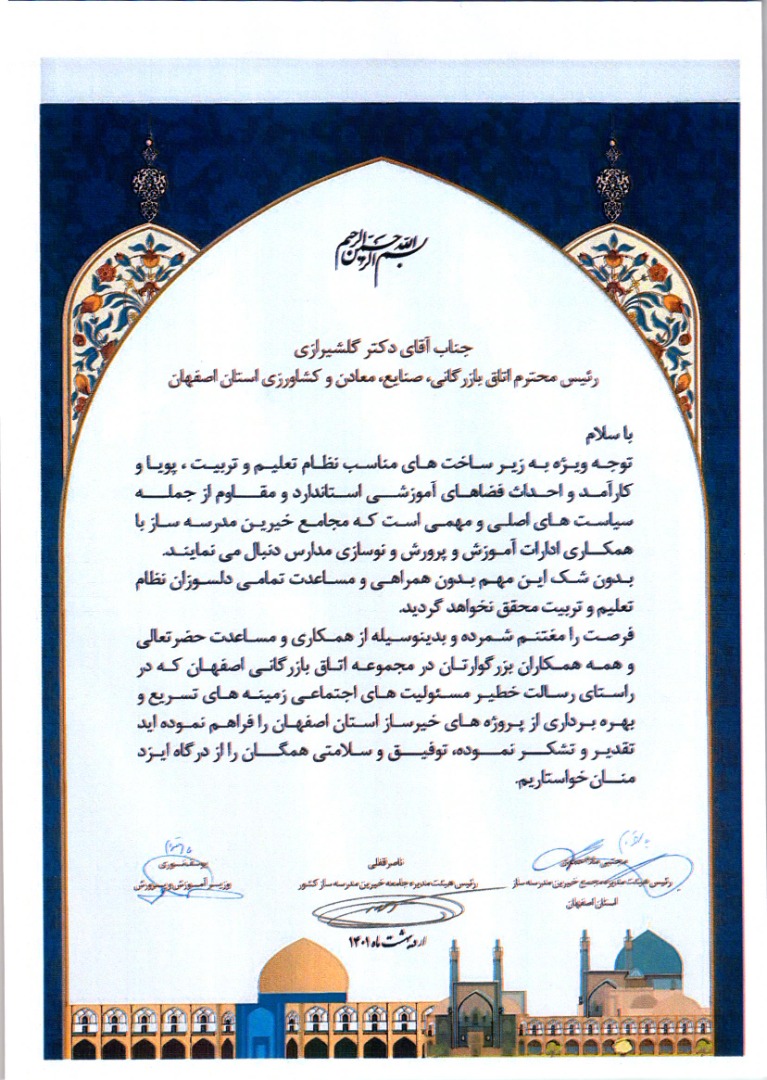 بسم الله الرحمن الرحیم
جناب آقای دکتر گلشیرازی
رئیس محترم اتاق بازرگانی، صنایع، معادن و کشاورزی استان اصفهان
با سلام
توجه ویژه به زیر ساخت های مناسب نظام تعلیم و تربیت ، پویا و
کارآمد و احداث فضاهای آموزشی استاندارد و مقاوم از جمله
سیاست های اصلی و مهمی است که مجامع خیرین مدرسه ساز با
همکاری ادارات آموزش و پرورش و نوسازی مدارس دنبال می نمایند.
بدون شک این مهم بدون همراهی و مساعدت تمامی دلسوزان نظام
تعلیم و تربیت محقق نخواهد گردید.
فرصت را مغتنم شمرده و بدینوسیله از همکاری و مساعدت حضرتعالی
و همه همکاران بزرگوارتان در مجموعه اتاق بازرگانی اصفهان که در
راستای رسالت خطیر مسئولیت های اجتماعی زمینه های تسریع و
بهره برداری از پروژه های خیرساز استان اصفهان را فراهم نموده اید
تقدیر و تشکر نموده، توفیق و سلامتی همگان را از درگاه ایزد
منان خواستاریم.
مجتبی
رئیس هیئت مدیره مجمع خیرین مدرسه ساز
استان اصفهان
ناصر قفلی
رئیس هیئت مدیره جامعه خیرین مدرسه ساز کشور
یوسف نوری
وزیر آموزش و پرورش
اردیبهشت ماه ۱۴۰۱